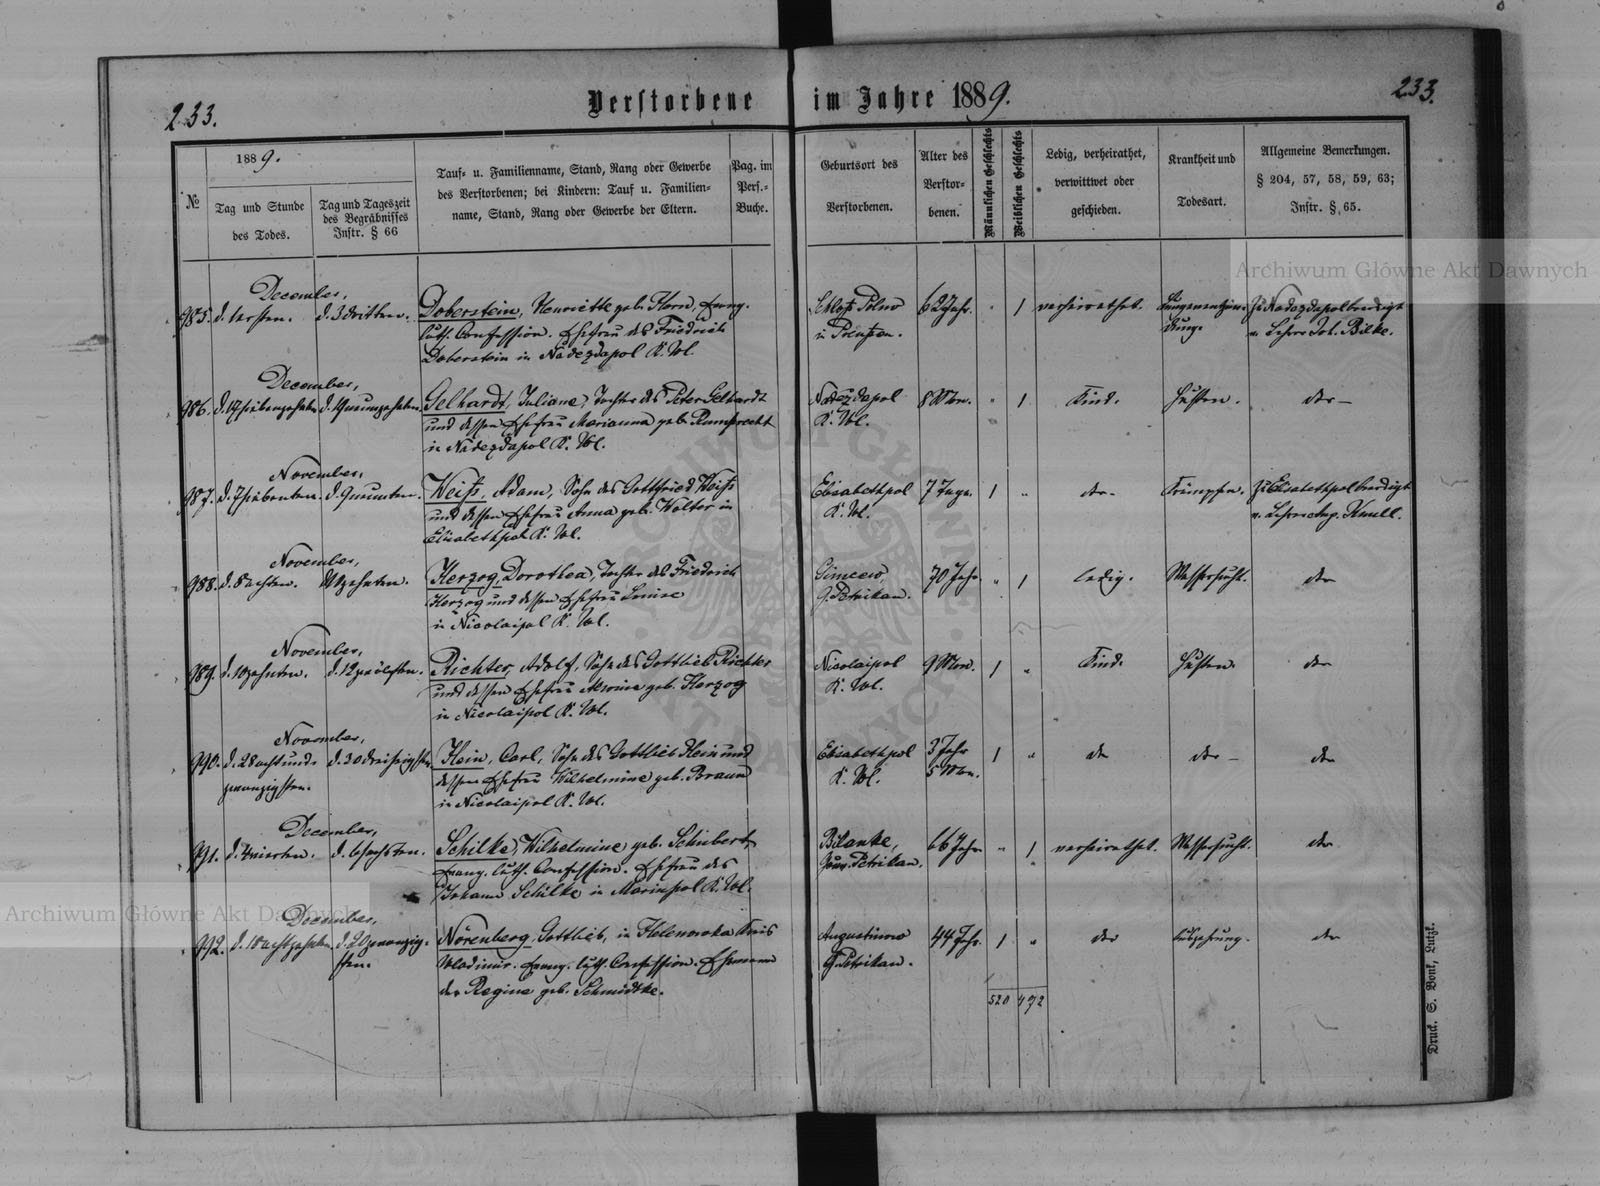 233.
Verstorbene im Jahre 1889.
233.
№
1889.
Tag und Stunde
des Todes.
Tag und Tageszeit
des Begräbnisses
Instr. § 66
Tauf- u. Familienname, Stand, Rang oder Gewerbe
des Verstorbenen; bei Kindern: Tauf u. Familien-
name, Stand, Rang oder Gewerbe der Eltern.
Pag. im
Pers.-
Buche.
Geburtsort des
Verstorbenen.
Alter des
Verstor-
benen.
Männlichen Geschlechts
Weiblichen Geschlechts
Ledig, verheirathet,
verwittwet oder
geschieden.
Krankheit und
Todesart.
Allgemeine Bemerkungen.
§ 204, 57, 58, 59, 63;
Instr. §, 65.
December,
985. d. 1ersten. d. 3dritten. Doberstein, Henriette geb. Horn, Evang.
luth. Confession. Ehefrau des Friedrich
Doberstein in Nadezdapol K. Wl.
Schloß Filene
in Preußen.
62 Jahr. " 1 verheirathet.
Zu Nadezdapol beerdigt
v. Lehrer Joh. Bilke.
December,
986. d. 17siebenzehnten d. 19neunzehnten. Gelhardt, Juliane, Tochter des Peter Gelhardt
und dessen Ehefrau Marianna geb. Rumprecht
in Nadezdapol K. Wl.
Nadezdapol
K. Wl.
8 Mon. " 1 Kind. Husten. der —
November,
987. d. 7siebenten. d. 9neunten. Weiß, Adam, Sohn des Gottfried Weiß
und dessen Ehefrau Anna geb. Wolter in
Elisabethpol K. Wl.
Elisabethpol
K. Wl.
7 Tage. 1 " der. Krämpfen. Zu Elisabethpol beerdigt
v. Lehrer Aug. Knull.
November,
988. d. 8achten. 10zehnten. Herzog, Dorothea, Tochter des Friedrich
Herzog und dessen Ehefrau Louise
in Nicolaipol K. Wl.
G. Petrikau.
70 Jahr " 1 ledig. Wassersucht. der
November,
989. d. 10zehnten. d. 12zwölften. Richter, Adolf, Sohn des Gottlieb Richter
und dessen Ehefrau geb. Herzog
in Nicolaipol K. Wl.
Nicolaipol
K. Wl.
9 Mon. 1 " Kind. Husten. der
November,
990. d. 28achtund-
zwanzigsten.
d. 30dreißigsten Hein, Carl, Sohn des Gottlieb Hein und
dessen Ehefrau Wilhelmine geb. Braun
in Nicolaipol K. Wl.
Elisabethpol
K. Wl.
3 Jahr
5 Mon.
1 " der der — der
December,
991. d. 4vierten. d. 6sechsten. Schilke, Wilhelmine geb. Schubert,
Evang. luth. Confession. Ehefrau des
Johann Schilke in Marinpol K. Wl.
Bilanke,
Gouv. Petrikau.
66 Jahr " 1 verheirathet. Wassersucht. der
December,
992. d. 18achtzehnten d. 20zwanzig-
sten.
Nörenberg, Gottlieb, in Helenowka Kreis
Wladimir. Evang. luth. Confession. Ehemann
der Regine geb. Schmidtke.
Augustinow
G. Petrikau.
44 Jahr. 1 " der Auszehrung. der
520 472
Druck. S. Bonk, Lutzk.
Archiwum Główne Akt Dawnych
Archiwum Główne Akt Dawnych